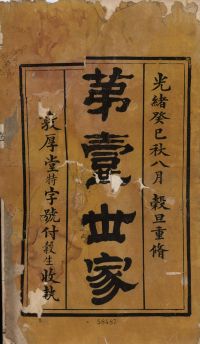 光緒癸巳秋八月 榖旦重脩
第壹世家
敦厚堂特字號付榖生收執
58487